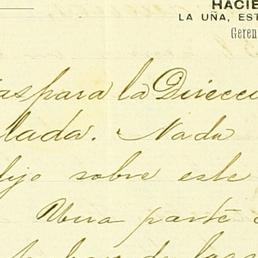 HACIE
LA UÑA, EST
Geren
as para la Direcci
lada. Nada
dijo sobre este
Una parte